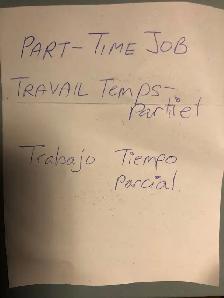 PART-TIME JOB
TRAVAIL Temps-
Partiel
Trabajo Tiempo
Parcial